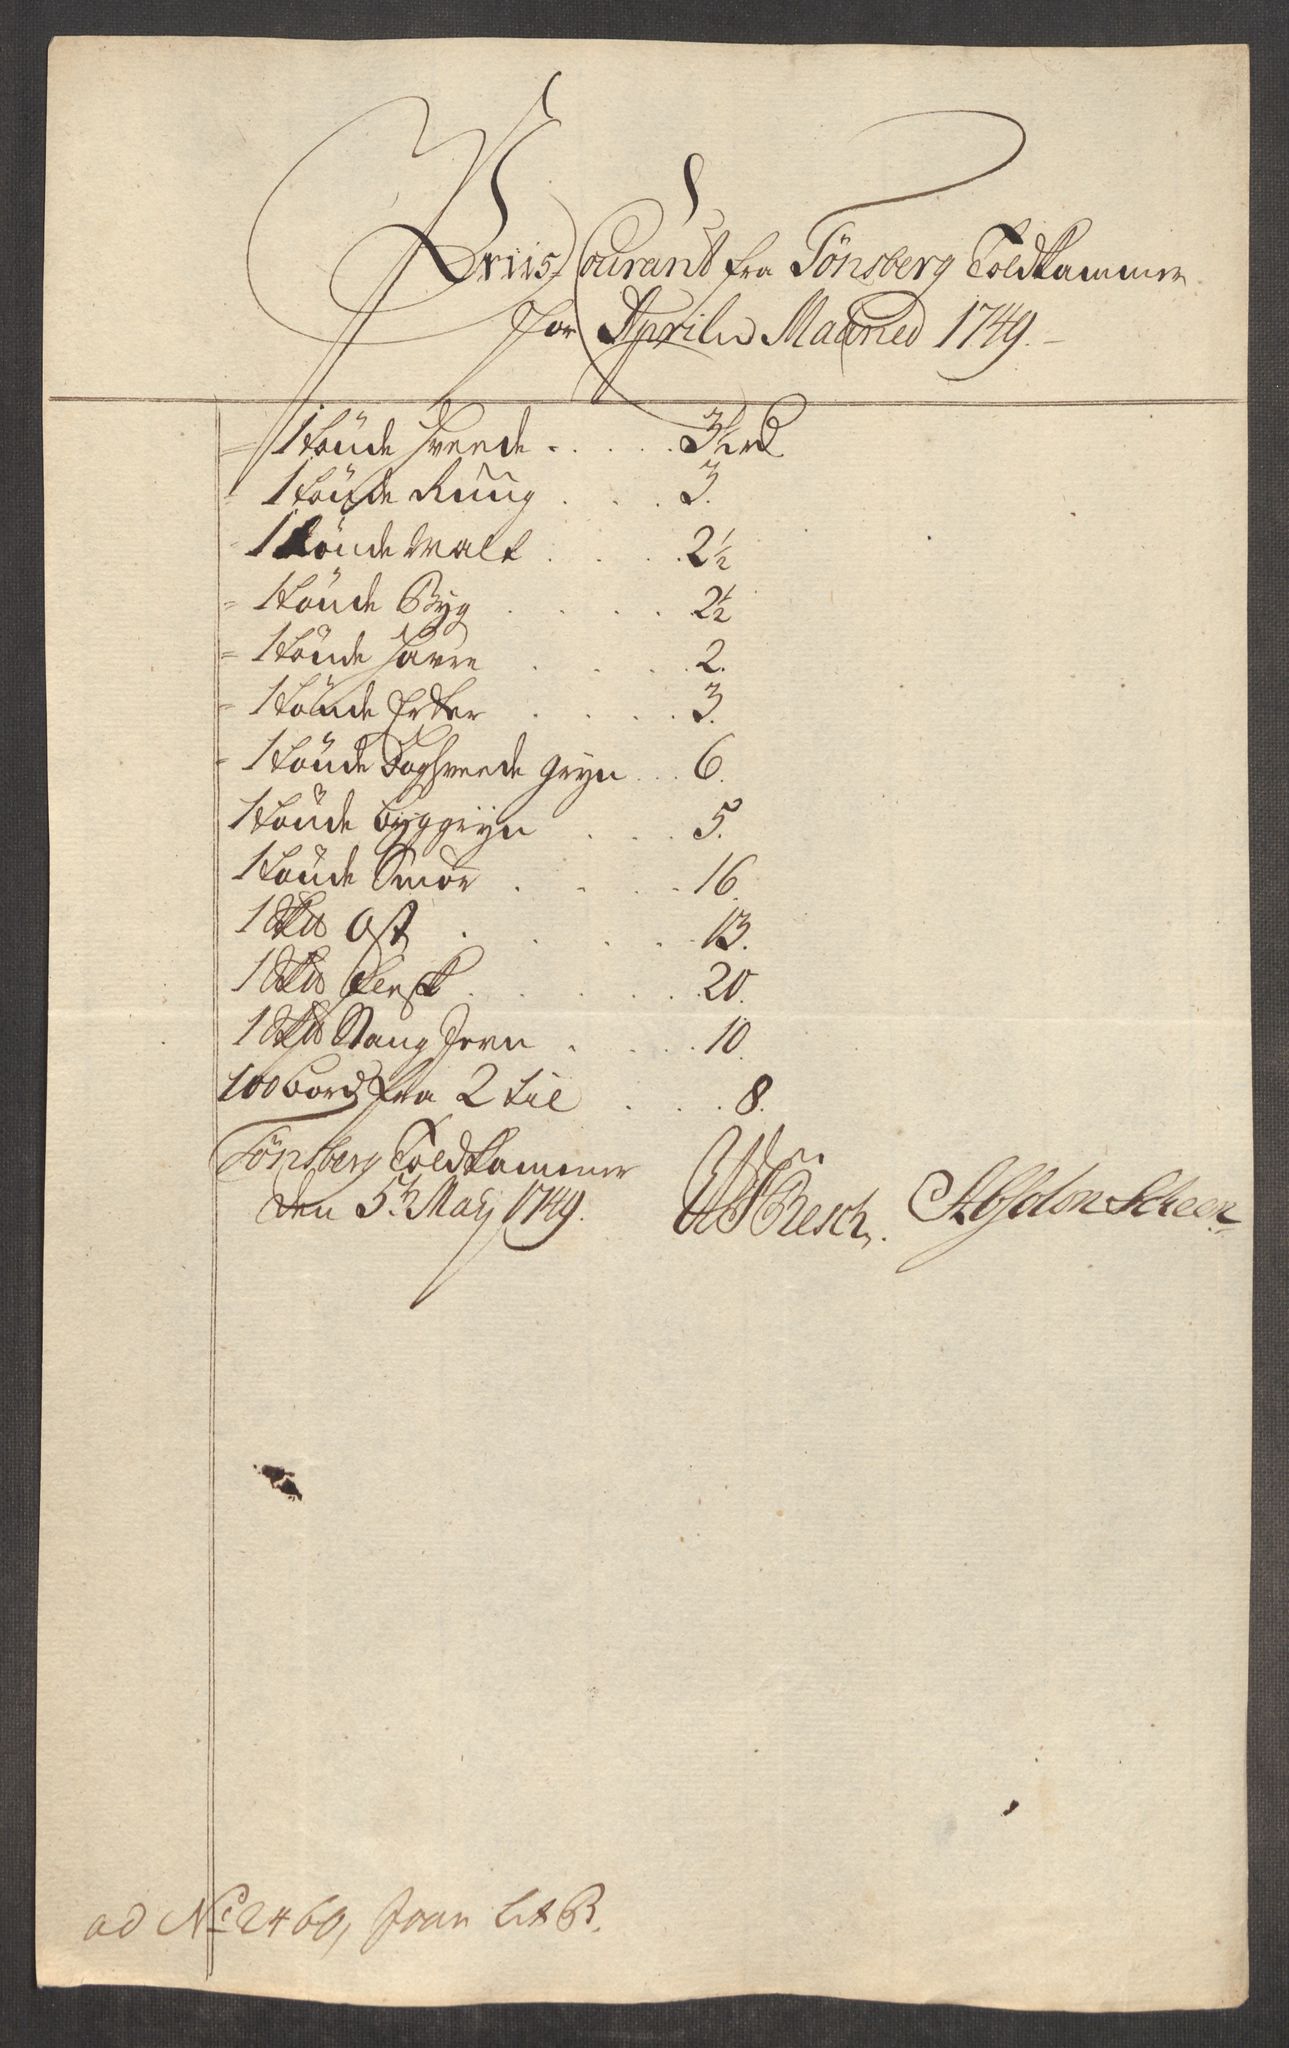 Priis Courant fra Tönsberg Toldkammer
for Aprilis Maaned 1749.
1 tönde Hveede 3½ rd
1 tönde Ruug 3.
1 tönde Malt 2½
1 tönde Byg 2½
1 tönde Havre 2.
1 tönde Erter 3.
1 tönde Boghveede gryn 6.
1 tönde byggryn 5.
1 tönde Smör 16.
1 Sk℔ Ost 13.
1 Sk℔ flesk 20.
1 Sk℔ Stang Jern 10.
100 bord fra 2 til 8.
Tönsberg Toldkammer
den 5te May 1749. Resch. Absolon Scheen
ad No 2460, Lit B.